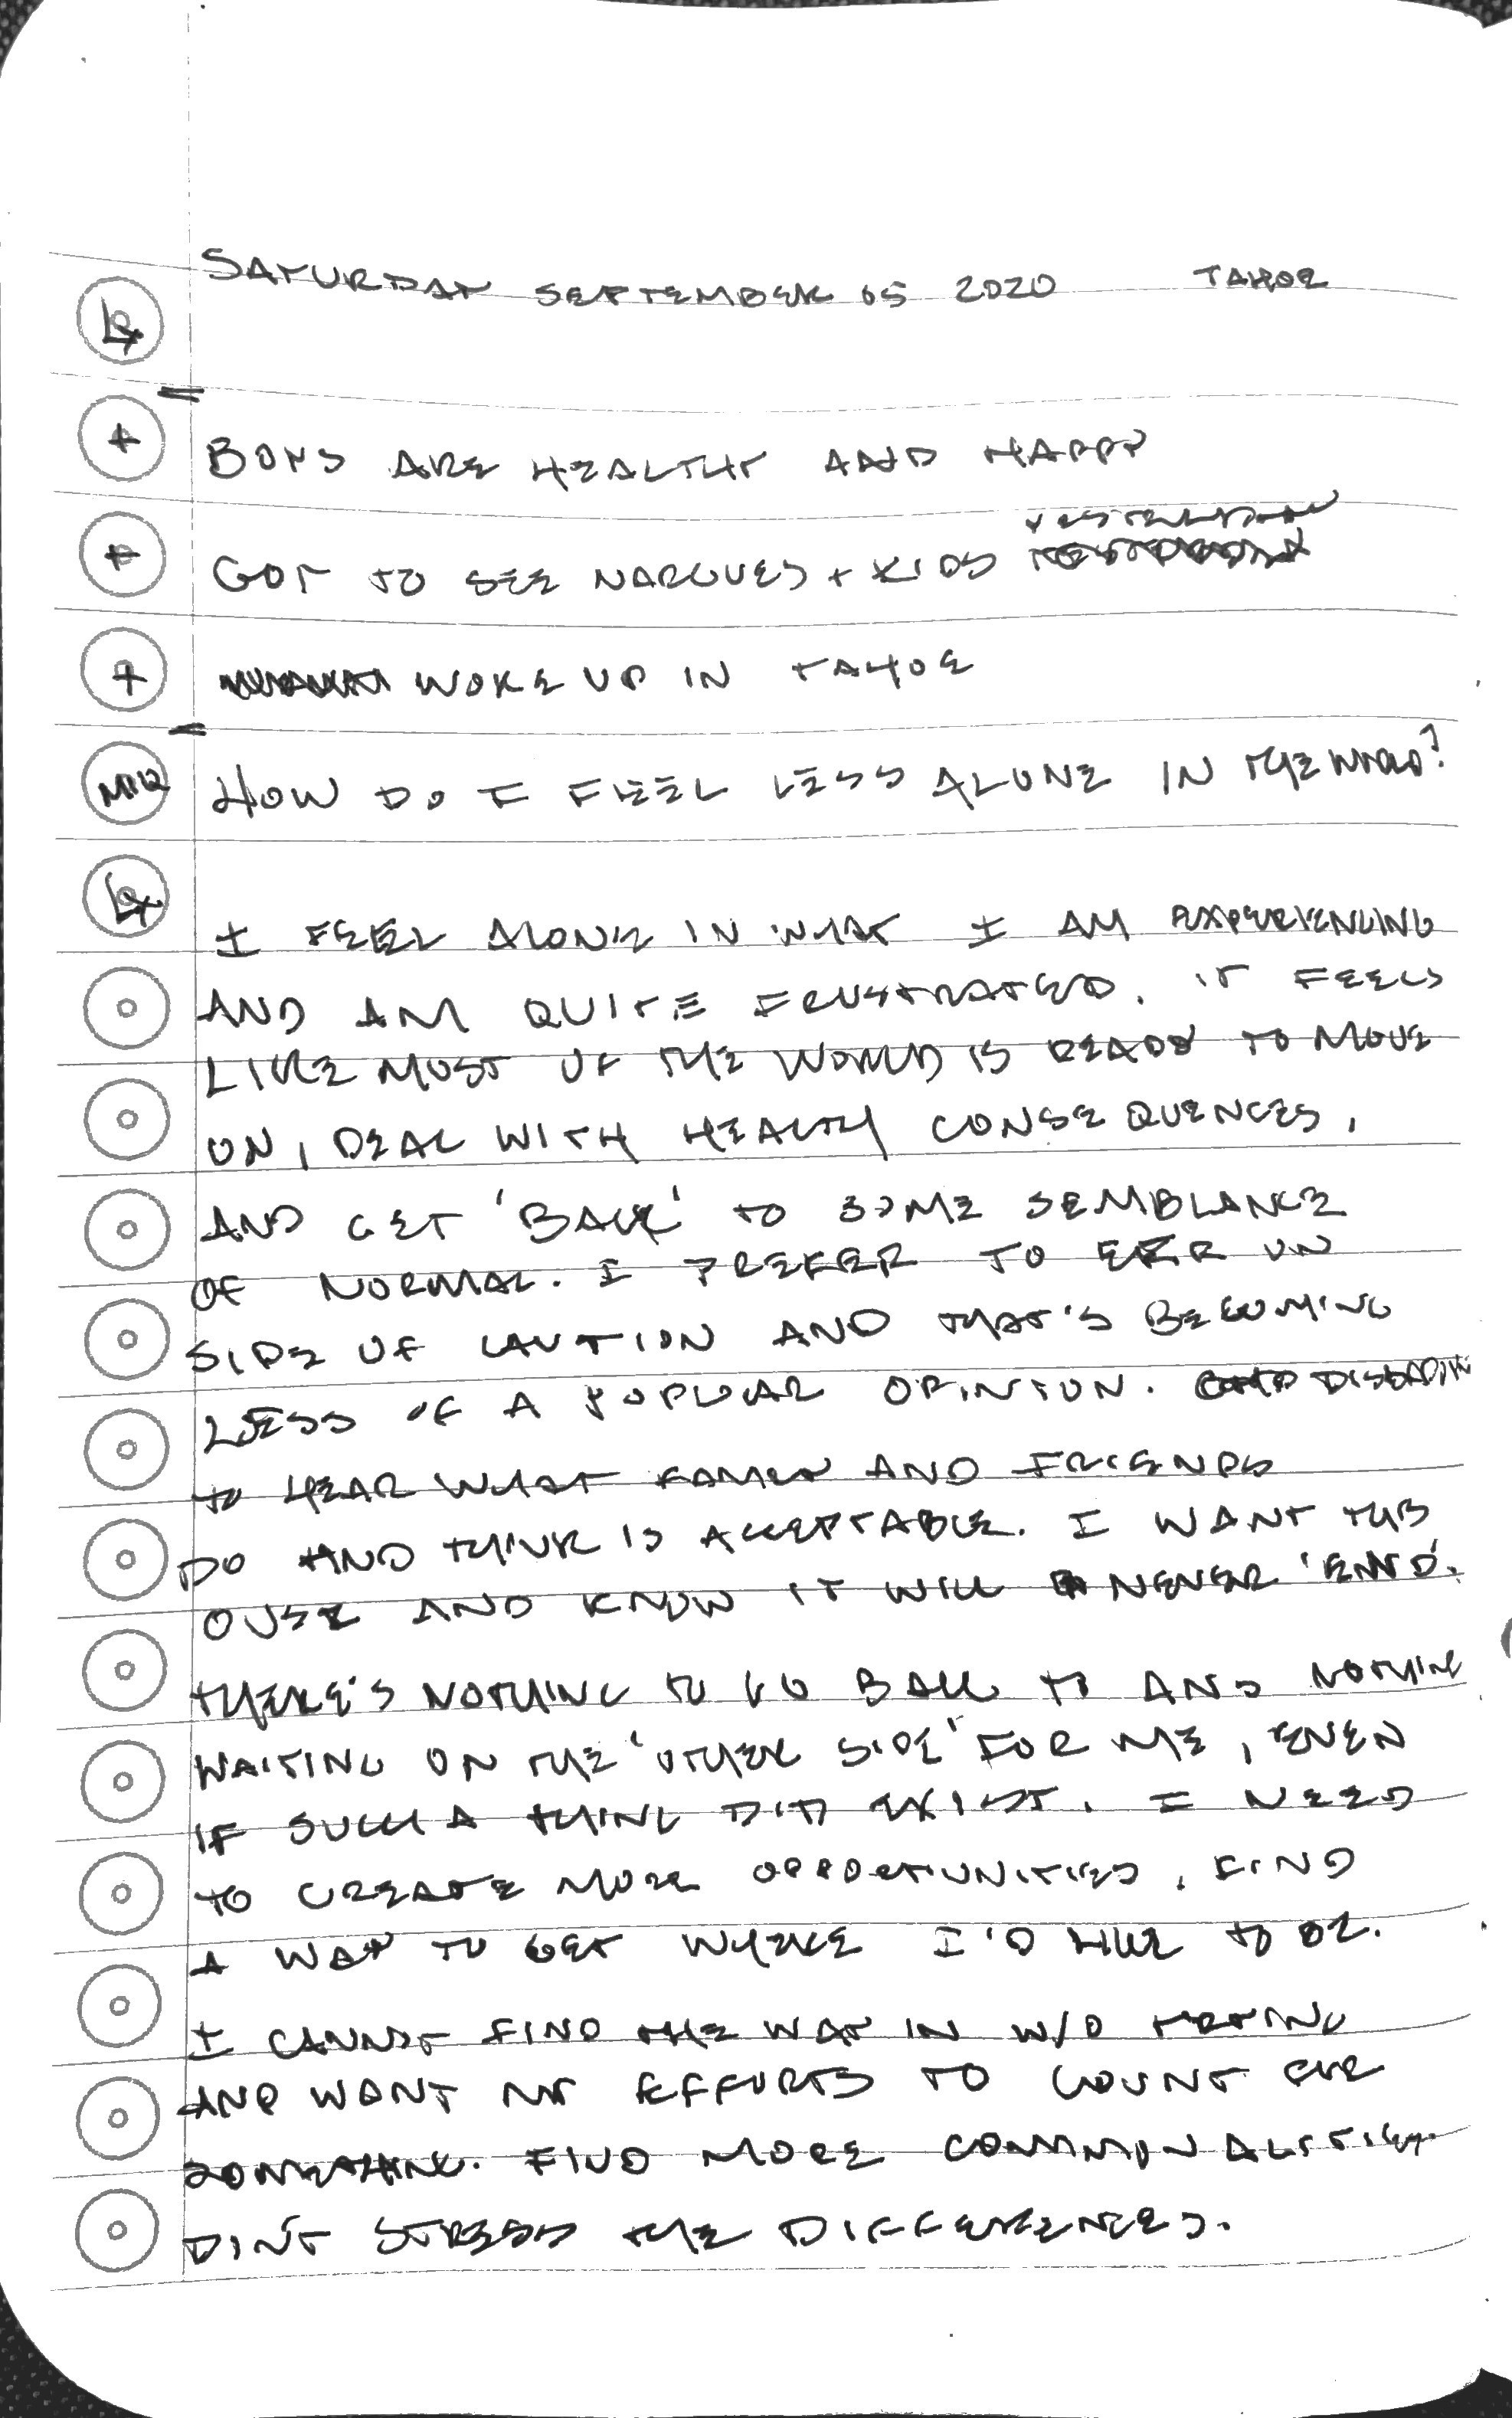 SATURDAY SEPTEMBER 05 2020 TAHOE
BOYS ARE HEALTHY AND HAPPY
YESTERDAY
GOT TO SEE NARGUES + KIDS
WOKE UP IN TAHOE
MIQ HOW DO I FEEL LESS ALONE IN THE WORLD?
I FEEL ALONE IN WHAT I AM EXPERIENCING
AND AM QUITE FRUSTRATED. IT FEELS
LIKE MOST OF THE WORLD IS READY TO MOVE
ON, DEAL WITH HEALTH CONSEQUENCES,
AND GET 'BACK' TO SOME SEMBLANCE
OF NORMAL. I PREFER TO ERR ON
SIDE OF CAUTION AND THAT'S BECOMING
LESS OF A POPULAR OPINION.
TO HEAR WHAT FAMILY AND FRIENDS
DO AND THINK IS ACCEPTABLE. I WANT THIS
OVER AND KNOW IT WILL NEVER 'END'.
THERE'S NOTHING TO GO BACK TO AND NOTHING
WAITING ON THE 'OTHER SIDE' FOR ME, EVEN
IF SUCH A THING DID EXIST. I NEED
TO CREATE MORE OPPORTUNITIES, FIND
A WAY TO GET WHERE I'D LIKE TO BE.
I CANNOT FIND THE WAY IN W/O TRYING
AND WANT MY EFFORTS TO COUNT FOR
SOMETHING. FIND MORE COMMONALITIES.
DON'T STRESS THE DIFFERENCES.